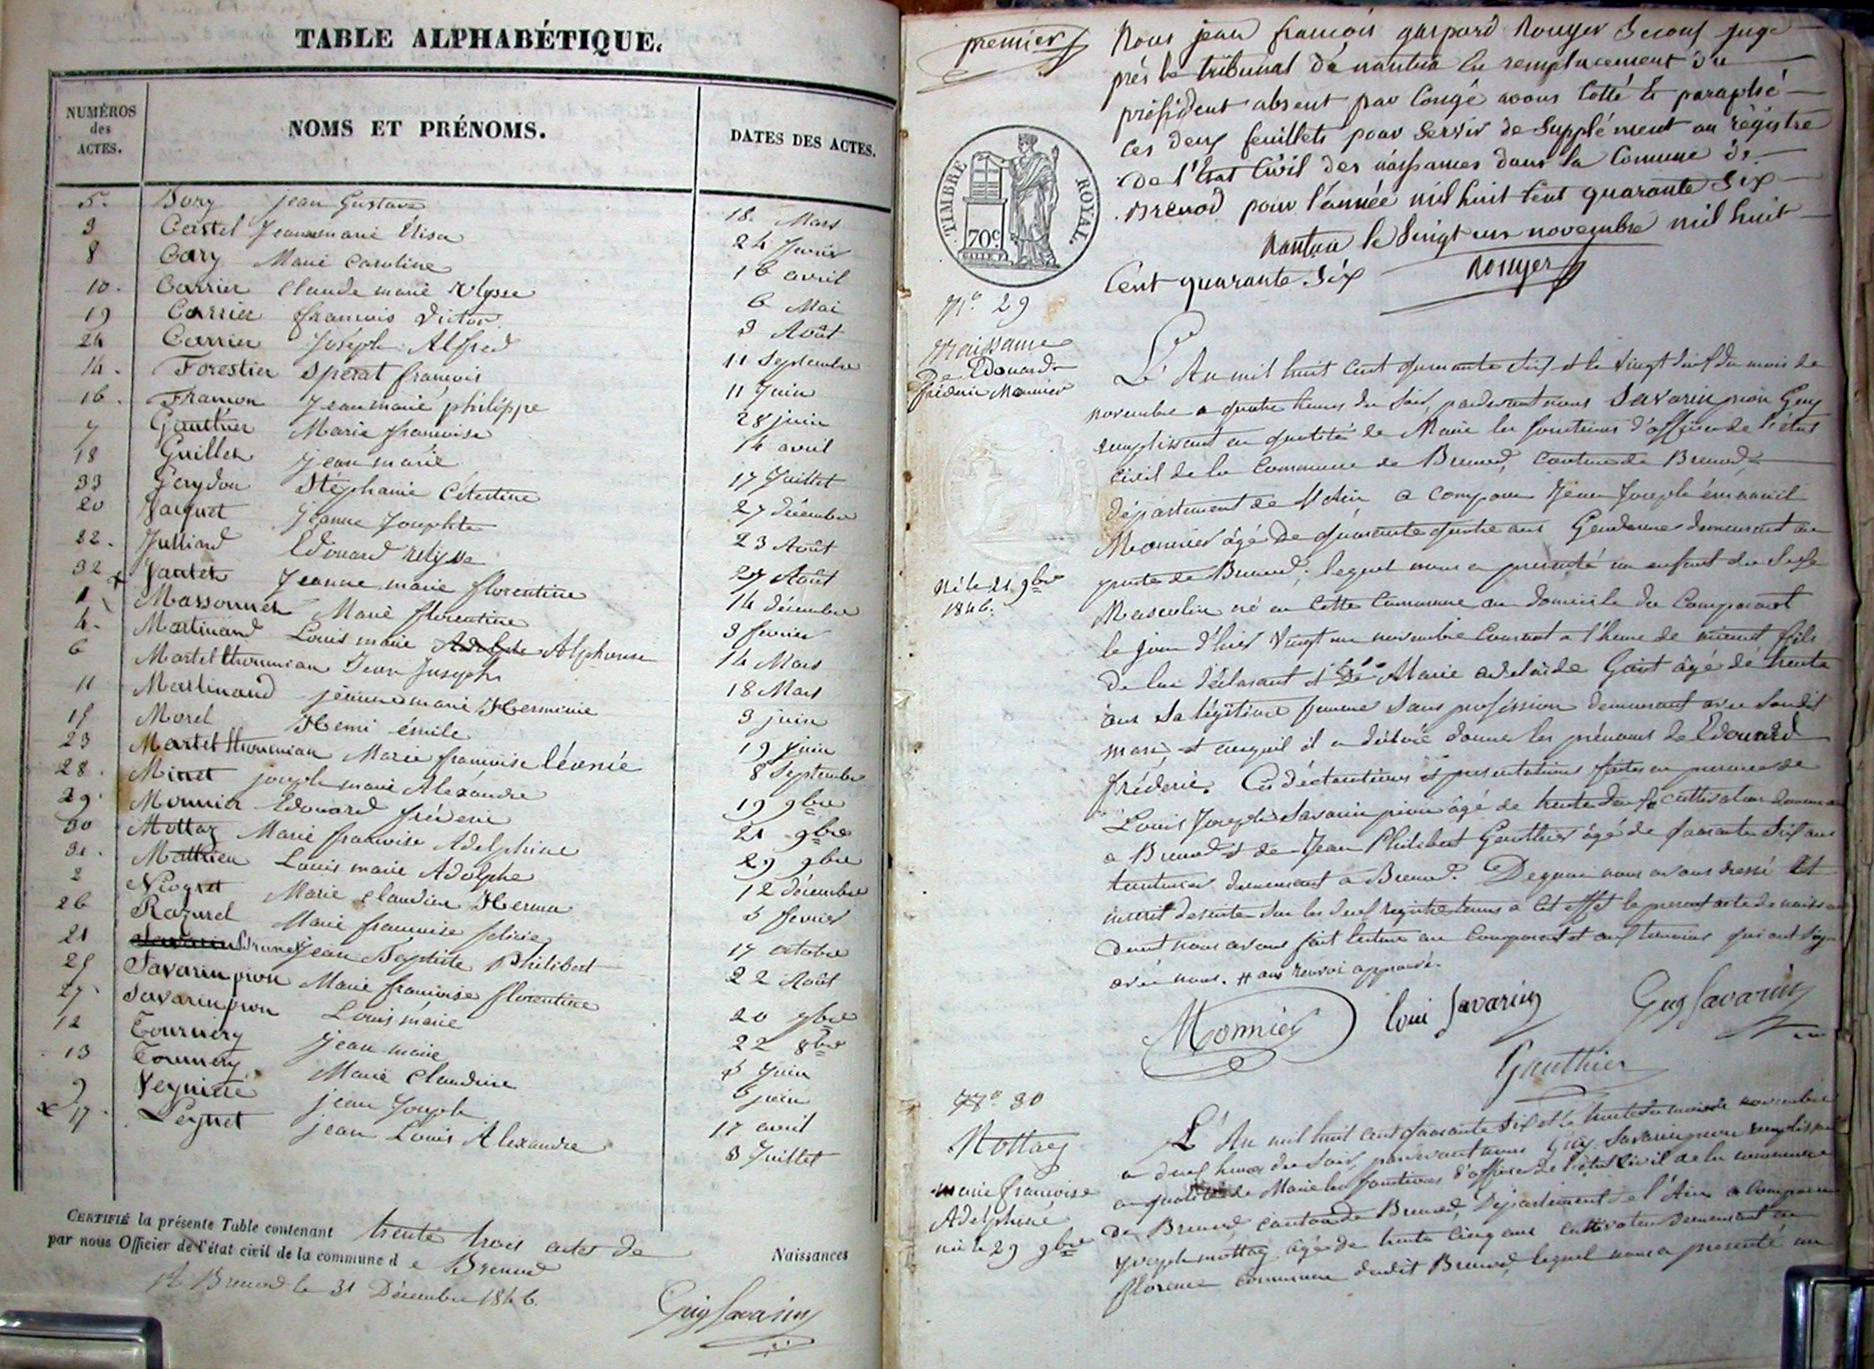 TABLE ALPHABÉTIQUE.
NUMÉROS
des
ACTES.
NOMS ET PRÉNOMS.
DATES DES ACTES.
5. Bory jean Gustave 18 Mars
3 Castel Jeanne marie Élisa 24 fevrier
8 Cary Marie Caroline 16 avril
10. Carrier Claude marie Ulysse 6 Mai
19 Carrier francois Victor 9 Août
24 Carrier Joseph Alfred 11 Septembre
14. Forestier Sperat francois 11 Juin
16. Framon Jean marie philippe 28 juin
7 Gauthier Marie francoise 14 avril
18 Guillet jean marie 17 Juillet
33 Gerydon Stéphanie Célestine 27 décembre
20 Jacquet Jeanne Josephte 23 Août
22. Julliard Edouard Ulysse 27 Août
32 Jantet Jeanne marie florentine 14 décembre
1 Massonnet Marie florentine 3 fevrier
4. Martinand Louis marie Adolphe Alphonse 14 Mars
6 Martel thoumian Jean Joseph 18 Mars
11 Martinand jeanne marie Herminie 9 juin
15 Morel Henri émile 19 juin
23 Martel thoumian Marie francoise léonie 8 Septembre
28. Minet joseph marie Alexandre 19 9bre
29. Monnier Edouard fréderic 21 9bre
30 Mottaz Marie francoise Adelphine 29 9bre
31. Mathieu Louis marie Adolphe 12 décembre
2 Niogret Marie claudine Herma 5 fevrier
26 Razurel Marie francoise felicie 17 octobre
21 Savarin Brunet Jean Baptiste Philibert 22 Août
25 Savarin pion Marie francoise florentine 20 9bre
27 Savarin pion Louis marie 22 8bre
12 Tournery jean marie 5 Juin
13 Tournery Marie Claudine 6 juin
9 Veyniere jean Joseph 17 avril
x 17. Peynet jean Louis Alexandre 3 Juillet
CERTIFIÉ la présente Table contenant trente trois actes de Naissances
par nous Officier de l'état civil de la commune d e Brenod
A Brenod le 31 Décembre 1846.
Guy Savarin
premier
Nous jean francois gaspard Rouyer Second juge
près le tribunal de nantua en remplacement du
président absent par Congé avons Cotté & paraphé
ces deux feuillets pour Servir de Supplément au régistre
de l'État Civil des naissances dans la Comune de
Brenod pour l'année mil huit Cent quarante Six
Nantua le Vingt un novembre mil huit
Cent quarante Six
Rouyer
TIMBRE ROYAL.
70c
N° 29
Naissance
de Edouard
fréderic Monnier
né le 21 9bre
1846.
L'An mil huit cent quarante Six et le vingt deux du mois de
novembre a quatre heures du Soir, pardevant nous Savarin pion Guy
remplissant en qualité de Maire les fonctions d'officier de l'état
Civil de la Commune de Brenod, Canton de Brenod,
département de l'Ain a comparu Jean Joseph émanuel
Monnier âgé de quarante quatre ans Gendarme demeurant au
poste de Brenod, lequel nous a presenté un enfant du Sexe
Masculin né en Cette Commune au domicile du Comparant
le jour d'hier Vingt un novembre Courant a l'heure de minuit fils
de lui déclarant et de Marie adelaide Goist âgé de trente
ans Sa légitime femme Sans profession demeurant avec Son dit
mari, et auquel il a déclaré donner les prénoms de Edouard
fréderic. Ces déclarations et presentations faites en presence de
Louis Joseph Savarin pion âgé de trente deux cultivateur
a Brenod et de Jean Philibert Gauthier âgé de Soixante Six ans
demeurant a Brenod. De quoi nous avons dressé et
inscrit desuite Sur les deux registres tenus a Cet effet le present acte de naissance
dont nous avons fait lecture au Comparant et aux temoins qui ont Signé
avec nous. renvoi approuvé.
Monnier
loui Savarin
Guy Savarin
Gauthier
N° 30
Mottaz
marie francoise
Adelphine
née le 29 9bre
L'An mil huit cent quarante Six et le trente du mois de novembre
a deux heures du Soir, pardevant nous Guy Savarin pion remplissant
en qualité de Maire les fonctions d'officier de l'état Civil de la commune
de Brenod, Canton de Brenod, Département de l'Ain a comparu
Joseph mottaz âgé de trente Cinq ans Cultivateur demeurant en
florence Commune dudit Brenod, lequel nous a presenté un